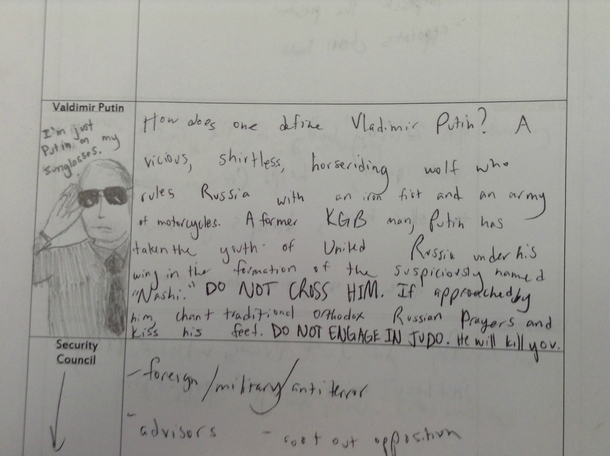 Valdimir Putin
I'm just
Putin on my
sunglasses.
How does one define Vladimir Putin? A
vicious, shirtless, horseriding wolf who
rules Russia with an iron fist and an army
of motorcycles. A former KGB man, Putin has
taken the youth of United Russia under his
wing in the formation of the suspiciously named
"Nashi." DO NOT CROSS HIM. If approached by
him, chant traditional Orthodox Russian Prayers and
kiss his feet. DO NOT ENGAGE IN JUDO. He will kill you.
Security
Council
- foreign/military/antiterror
- advisors - root out opposition